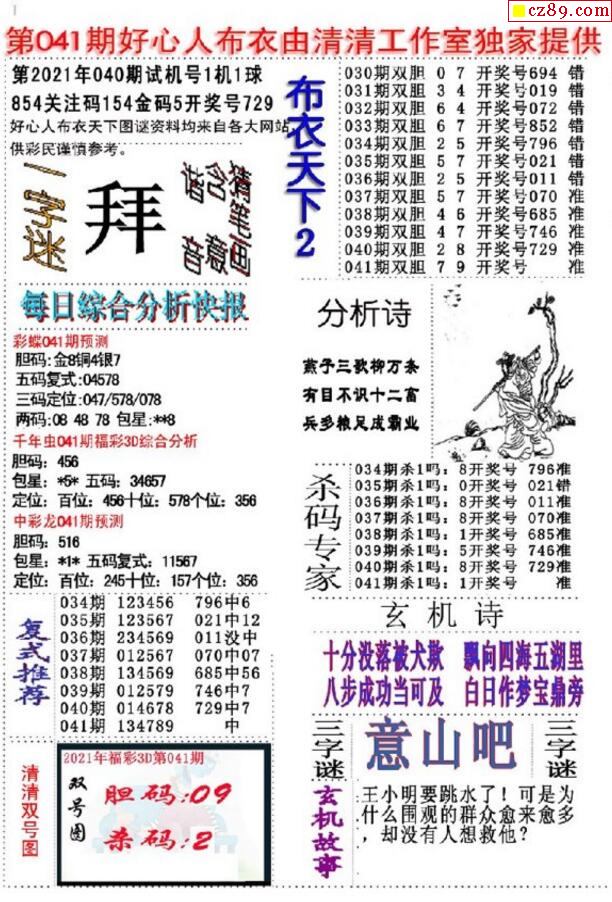 cz89.com
第041期好心人布衣由清清工作室独家提供
第2021年040期试机号1机1球
854关注码154金码5开奖号729
好心人布衣天下图谜资料均来自各大网站,
供彩民谨慎参考。
一字谜
拜
猜笔画
含意
谐音
布衣天下2
030期双胆 0 7 开奖号694 错
031期双胆 3 4 开奖号019 错
032期双胆 6 4 开奖号072 错
033期双胆 6 7 开奖号852 错
034期双胆 2 5 开奖号796 错
035期双胆 5 7 开奖号021 错
036期双胆 2 5 开奖号011 错
037期双胆 5 7 开奖号070 准
038期双胆 4 6 开奖号685 准
039期双胆 4 7 开奖号746 准
040期双胆 2 8 开奖号729 准
041期双胆 7 9 开奖号 准
每日综合分析快报
彩蝶041期预测
胆码:金8铜4银7
五码复式:04578
三码定位:047/578/078
两码:08 48 78 包星:**8
千年虫041期福彩3D综合分析
胆码: 456
包星: *5* 五码: 34657
定位: 百位: 456十位: 578个位: 356
中彩龙041期预测
胆码: 516
包星: *1* 五码复式: 11567
定位: 百位: 245十位: 157个位: 356
分析诗
燕子三歌柳万条
有目不识十二富
兵多粮足成霸业
杀码专家
034期杀1吗: 8开奖号 796准
035期杀1吗: 0开奖号 021错
036期杀1吗: 8开奖号 011准
037期杀1吗: 8开奖号 070准
038期杀1吗: 1开奖号 685准
039期杀1吗: 5开奖号 746准
040期杀1吗: 8开奖号 729准
041期杀1吗: 1开奖号 准
复式推荐
034期 123456 796中6
035期 123567 021中12
036期 234569 011没中
037期 012567 070中07
038期 134569 685中56
039期 012579 746中7
040期 014678 729中7
041期 134789 中
玄机诗
十分没落被犬欺 飘向四海五湖里
八步成功当可及 白日作梦宝鼎旁
三字谜
意山吧
三字谜
清清双号图
2021年福彩3D第041期
双号图
胆码:09
杀码:2
玄机故事
王小明要跳水了！可是为
什么围观的群众愈来愈多
，却没有人想救他？